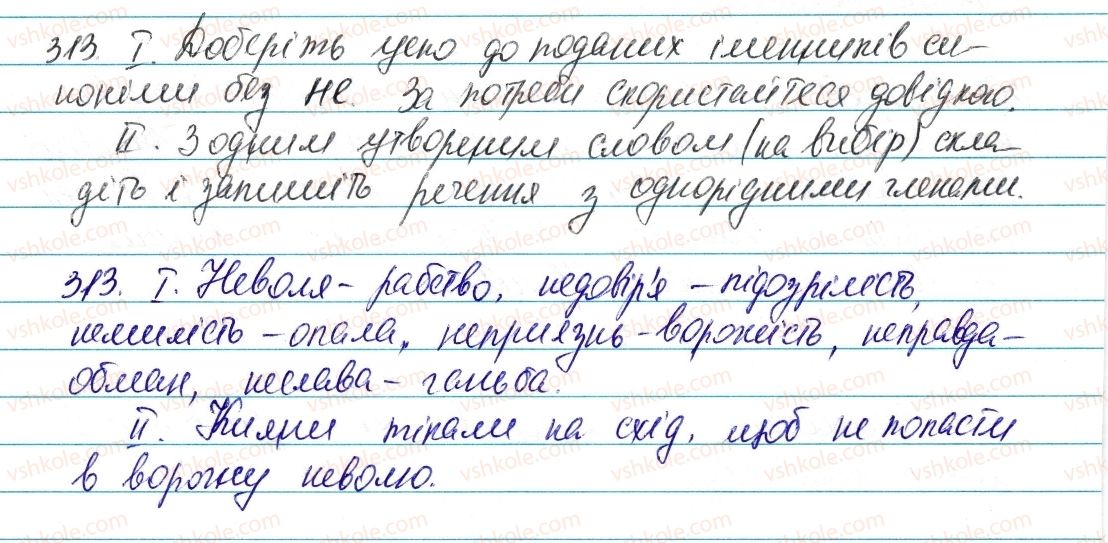 313. I. Доберіть усно до поданих іменників си-
ноніми без не. За потреби скористайтеся довідкою.
II. З одним утвореним словом (на вибір) скла-
діть і запишіть речення з однорідними членами.
313. I. Неволя - рабство, недовір'я - підозрілість,
немилість - опала, неприязнь - ворожість, неправда -
обман, неслава - ганьба.
II. Кияни тікали на схід, щоб не попасти
в ворожу неволю.